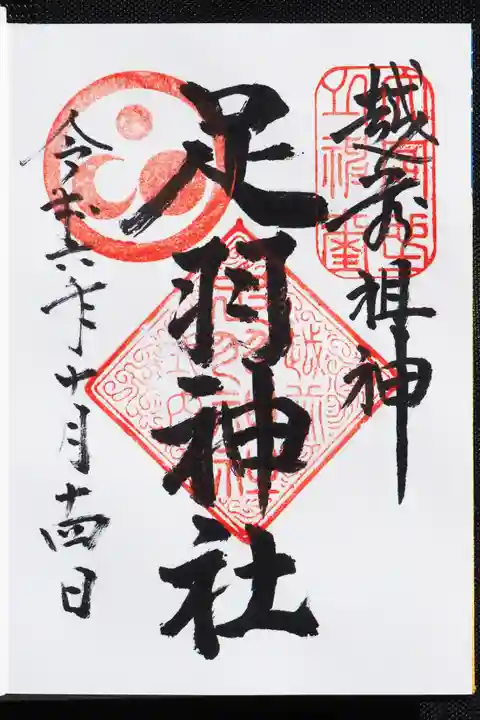 越前祖神
足羽神社
令和六年十月十四日